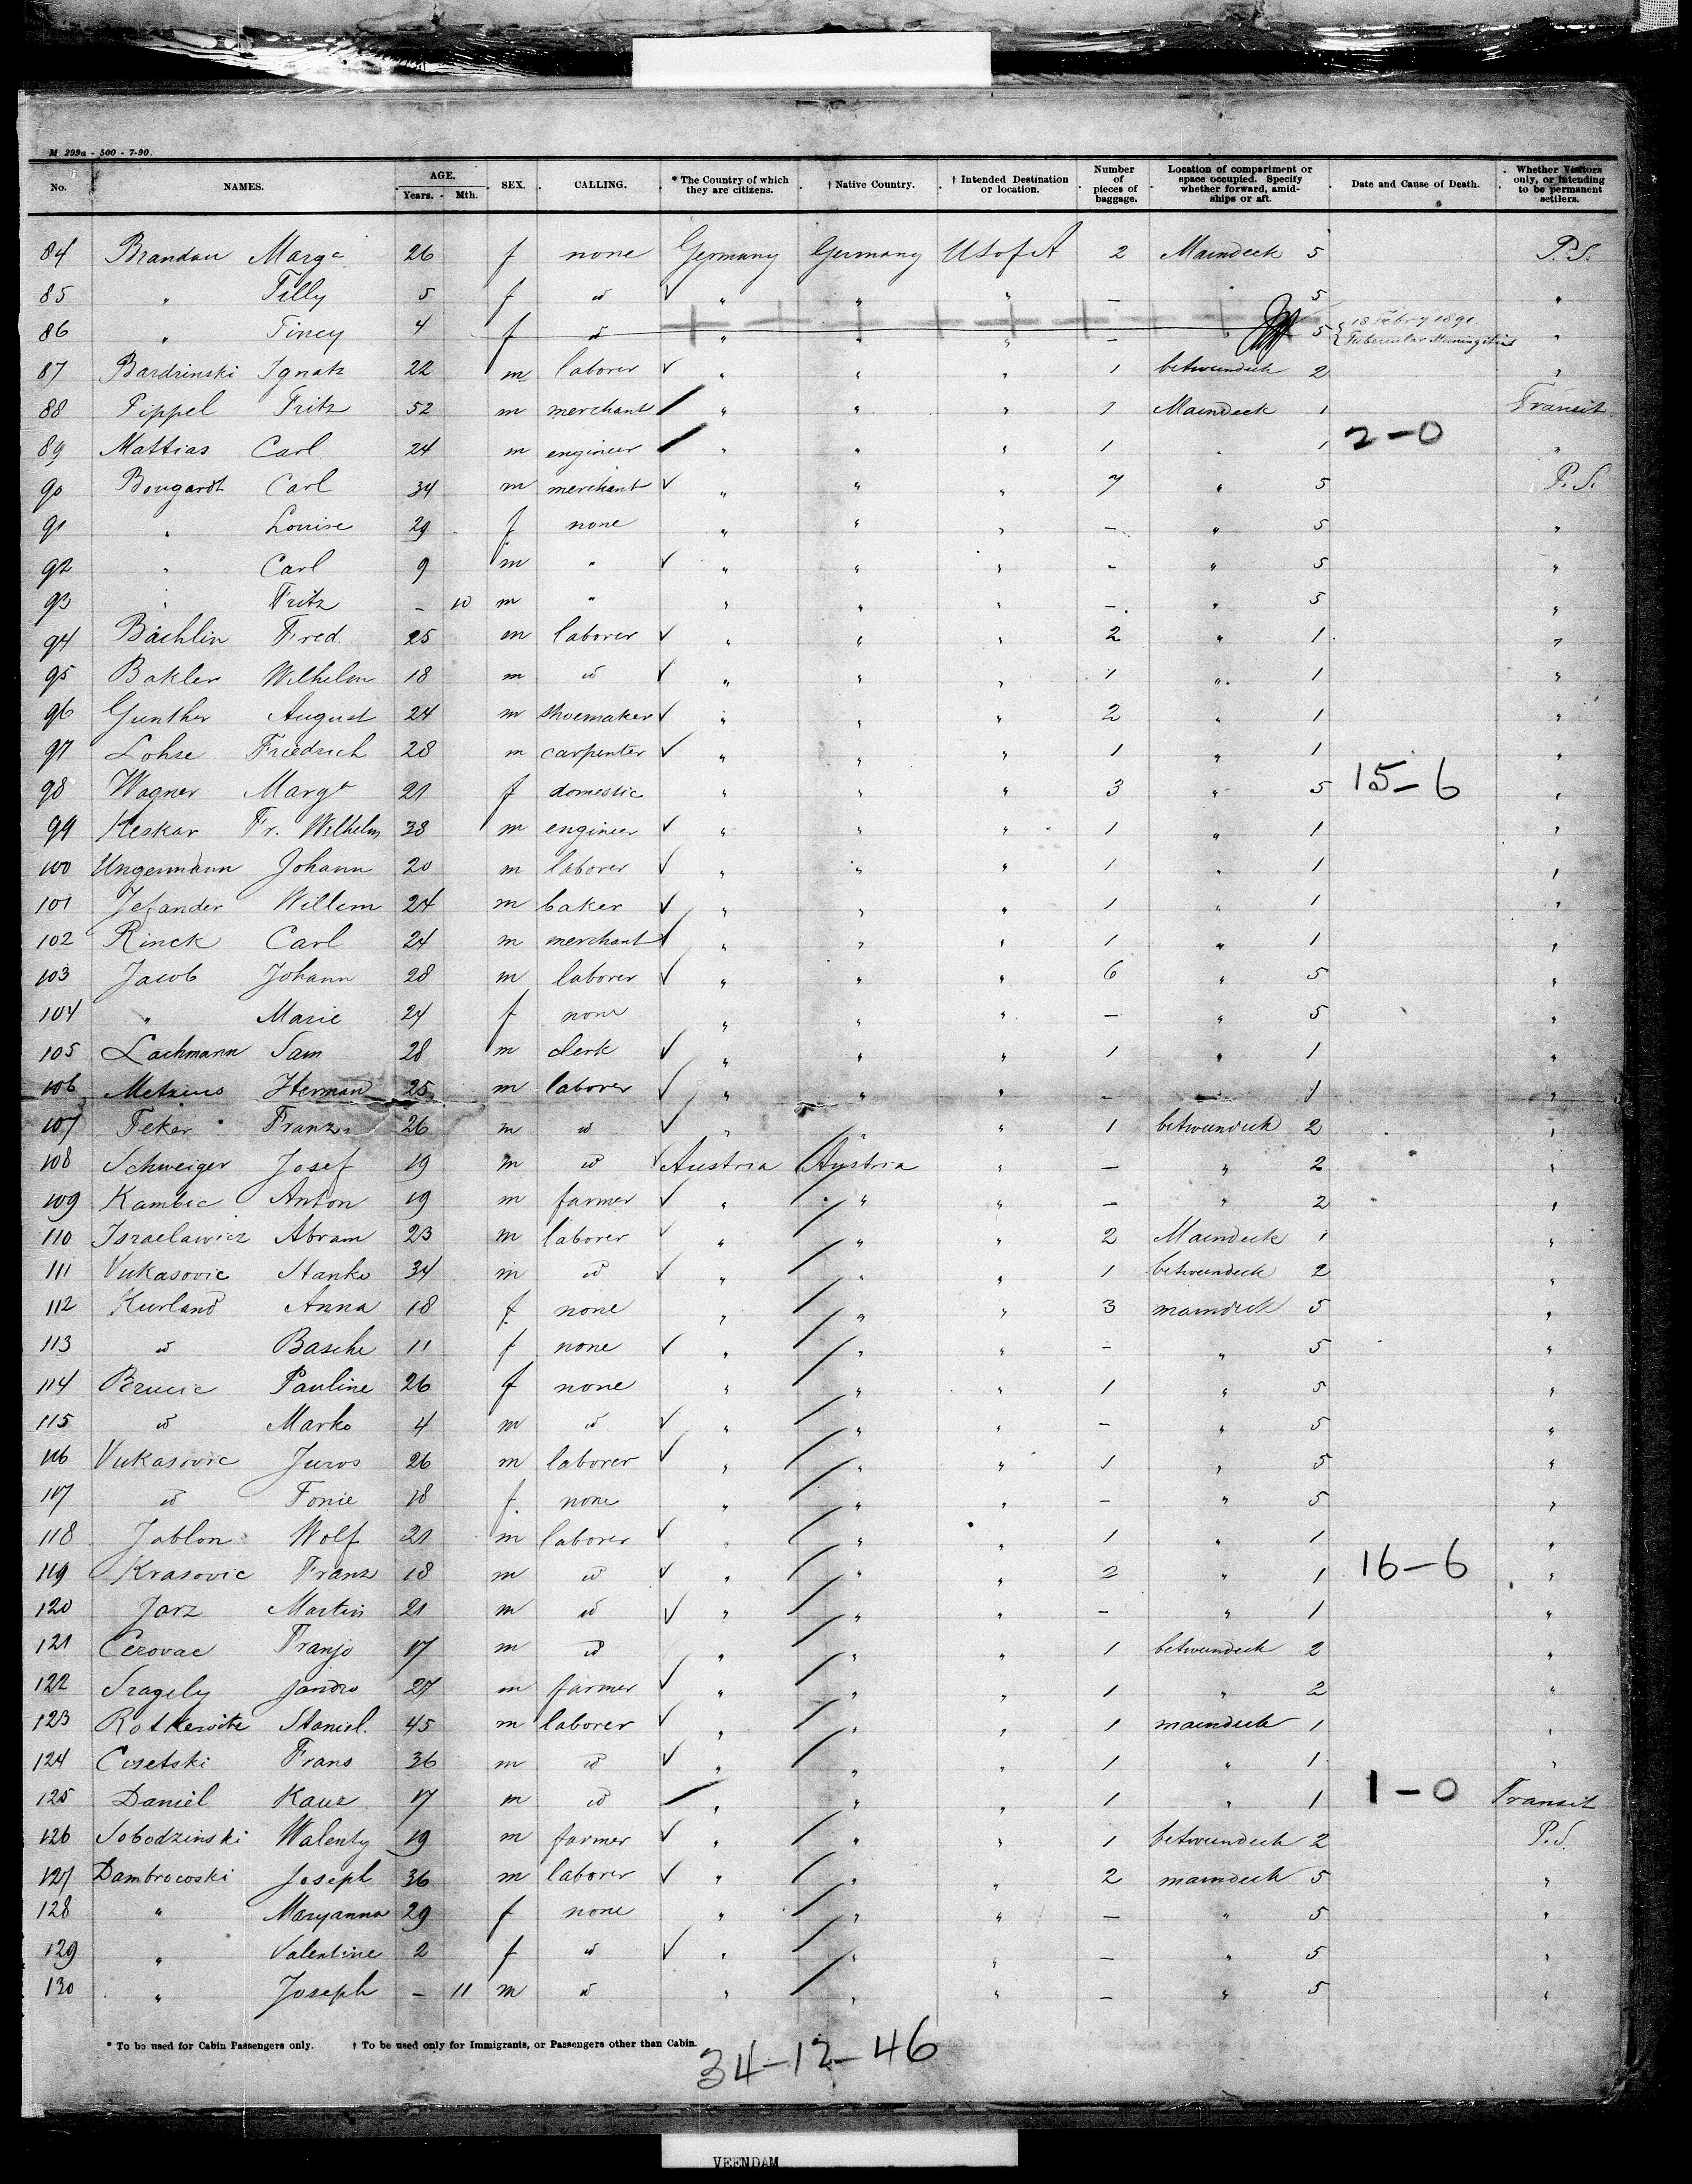 M 299a - 500 - 7-90.
No. NAMES. AGE. Years. Mth. SEX. CALLING. * The Country of which they are citizens. † Native Country. † Intended Destination or location. Number of pieces of baggage. Location of compartment or space occupied. Specify whether forward, amidships or aft. Date and Cause of Death. Whether Visitors only, or intending to be permanent settlers.
84 Brandau Marg 26 f none Germany Germany U S of A 2 Maindeck 5 P.S.
85 " Tilly 5 f id " " " — 5 "
86 " Tincy 4 f id " " " — " 5 { 18 Febry 1891 Tubercular Meningitis "
87 Bardzinski Ignatz 22 m laborer " " " 1 betweendeck 2 "
88 Pippel Fritz 52 m merchant " " " 1 Maindeck 1 Transit
89 Mattias Carl 24 m engineer " " " 1 " 1 2-0 "
90 Bongardt Carl 34 m merchant " " " 7 " 5 P.S.
91 " Louise 29 f none " " " — " 5 "
92 " Carl 9 m " " " " - " 5 "
93 " Fritz - 10 m " " " " -. " 5 "
94 Bächlin Fred. 25 m laborer " " " 2 " 1 "
95 Bakler Wilhelm 18 m id " " " 1 " 1 "
96 Gunther August 24 m shoemaker " " " 2 " 1 "
97 Lohse Friedrich 28 m carpenter " " " 1 " 1 "
98 Wagner Margt 21 f domestic " " " 3 " 5 15-6 "
99 Keskar Fr. Wilhelm 38 m engineer " " " 1 " 1 "
100 Ungermann Johann 20 m laborer " " " 1 " 1 "
101 Jefander Willem 24 m baker " " " 1 " 1 "
102 Rinck Carl 24 m merchant " " " 1 " 1 "
103 Jacob Johann 28 m laborer " " " 6 " 5 "
104 " Marie 24 f none " " " — " 5 "
105 Lachmann Sam 28 m clerk " " " 1 " 1 "
106 Metzius Herman 25 m laborer " " " - " 1 "
107 Feker Franz 26 m id " " " 1 betweendeck 2 "
108 Schweiger Josef 19 m id Austria Austria " — " 2 "
109 Kambic Anton 19 m farmer " " " — " 2 "
110 Israelawicz Abram 23 m laborer " " " 2 Maindeck 1 "
111 Vukasovic Stanko 34 m id " " " 1 betweendeck 2 "
112 Kurland Anna 18 f none " " " 3 maindeck 5 "
113 id Basche 11 f none " " " - " 5 "
114 Perucic Pauline 26 f none " " " 1 " 5 "
115 id Marko 4 m id " " " - " 5 "
116 Vukasovic Juros 26 m laborer " " " 1 " 5 "
117 id Tonie 18 f. none " " " - " 5 "
118 Jablon Wolf 21 m laborer " " " 1 " 1 "
119 Krasovic Franz 18 m id " " " 2 " 1 16-6 "
120 Jarz Martin 21 m id " " " - " 1 "
121 Cerovac Franjo 17 m id " " " 1 betweendeck 2 "
122 Sragely Jandro 27 m farmer " " " 1 " 2 "
123 Rotkewitz Stanisl. 45 m laborer " " " 1 maindeck 1 "
124 Cisetski Frans 36 m id " " " 1 " 1 "
125 Daniel Kauz 17 m id " " " 1 " 1 1-0 Transit
126 Sobodzinski Walenty 19 m farmer " " " 1 betweendeck 2 P.S.
127 Dambrowski Joseph 36 m laborer " " " 2 maindeck 5 "
128 " Maryanna 29 f none " " " — " 5 "
129 " Valentine 2 f id " " " — " 5 "
130 " Joseph - 11 m id " " " — " 5 "
* To be used for Cabin Passengers only. † To be used only for Immigrants, or Passengers other than Cabin.
34-12-46
VEENDAM